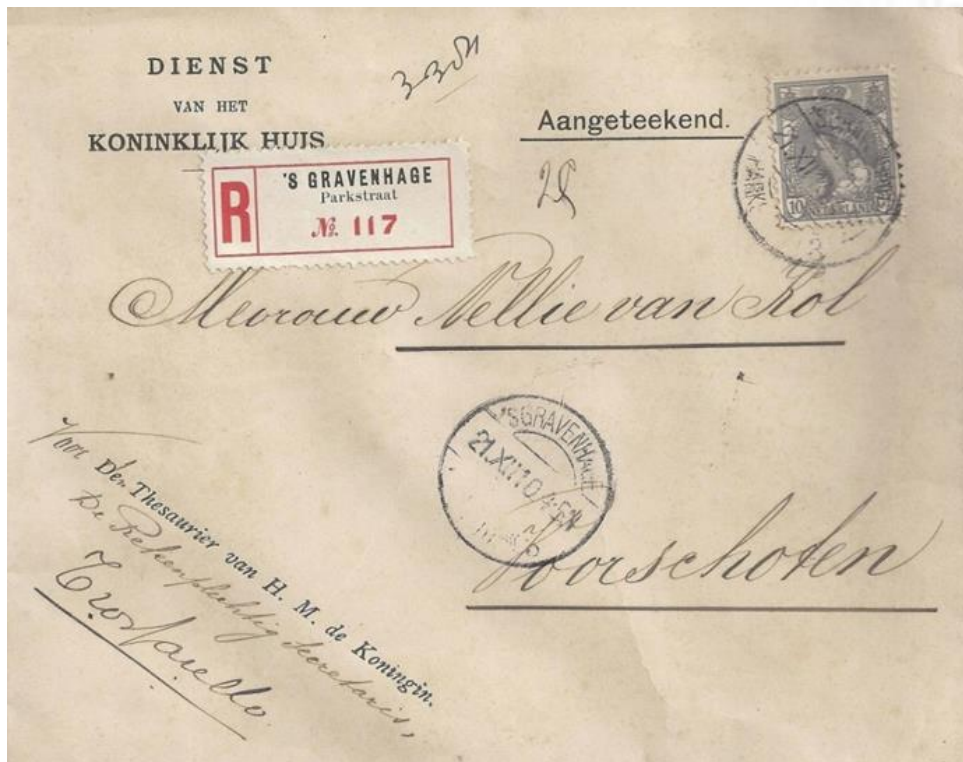 DIENST
VAN HET
KONINKLIJK HUIS
Aangeteekend.
R
'S GRAVENHAGE
Parkstraat
No. 117
10
NEDERLAND
Mevrouw Nellie van Kol
'SGRAVENHAGE
21.XII.10
Voorschoten
Voor Den Thesaurier van H. M. de Koningin.
De Rekenplichtig Secretaris,